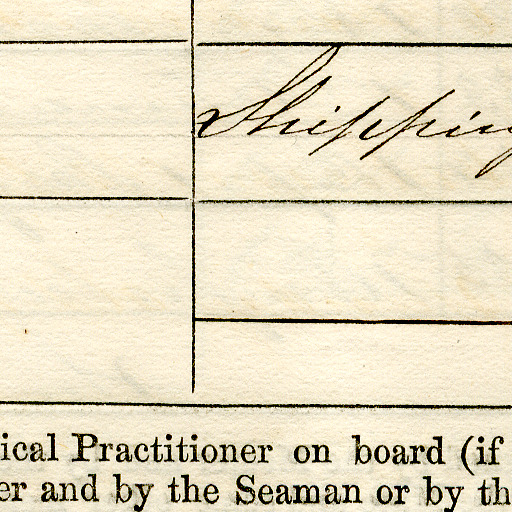 Shipping
ical Practitioner on board (if
er and by the Seaman or by th